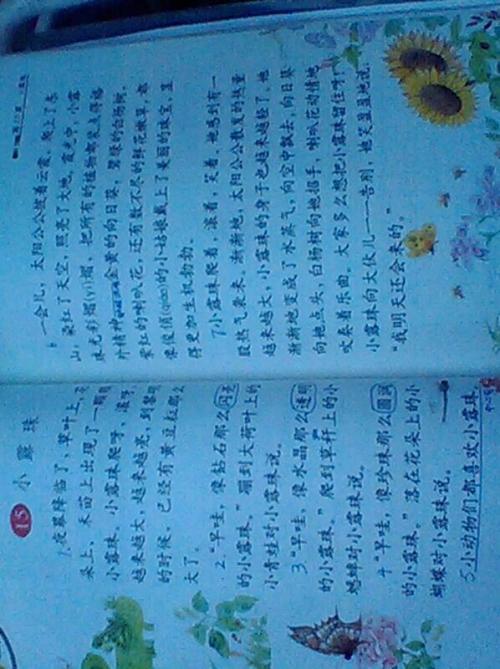 15 小露珠
1 夜幕降临了，草叶上，花
朵上，禾苗上出现了一颗颗
小露珠。小露珠爬呀，滚呀，
越来越大，越来越亮，到黎明
的时候，已经有黄豆粒那么
大了。
2 “早哇，像钻石那么闪亮
的小露珠。”蹦到大荷叶上的
小青蛙对小露珠说。
3 “早哇，像水晶那么透明
的小露珠。”爬到草秆上的小
蟋蟀对小露珠说。
4 “早哇，像珍珠那么圆润
的小露珠。”落在花朵上的小
蝴蝶对小露珠说。
5 小动物们都喜欢小露珠。
6 一会儿，太阳公公披着云霞，爬上了东
山，染红了天空，照亮了大地。霞光中，小露
珠光彩熠(yì)熠，把所有的植物都装点得格
外精神。金黄的向日葵，碧绿的白杨树，
紫红的喇叭花，还有数不尽的鲜花嫩草，都
像俊俏(qiào)的小姑娘戴上了美丽的珠宝，显
得更加生机勃勃。
7 小露珠爬着，滚着，笑着，她感到有一
股热气袭来。渐渐地，太阳公公散发的热量
越来越大，小露珠的身子也越来越轻了。她
渐渐地变成了水蒸气，向空中飘去，向日葵
向她点头，白杨树向她招手，喇叭花动情地
吹奏着乐曲。大家多么想把小露珠留住呀！
小露珠向大伙儿一一告别，她笑盈盈地说：
“我明天还会来的。”